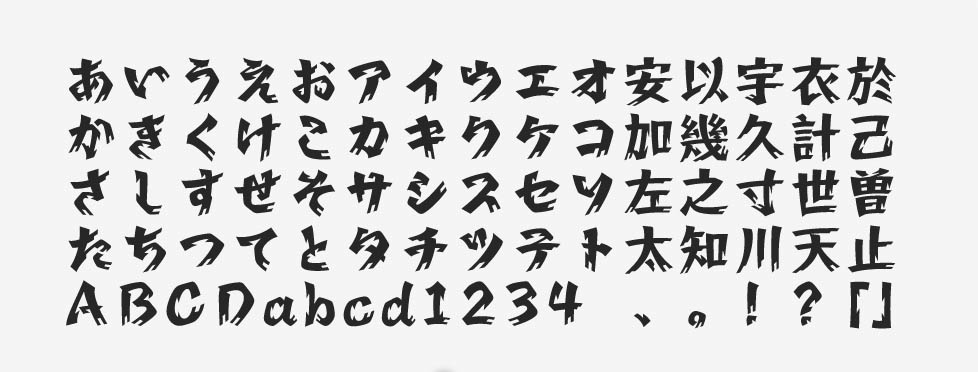 あいうえおアイウエオ安以宇衣於
かきくけこカキクケコ加幾久計己
さしすせそサシスセソ左之寸世曽
たちつてとタチツテト太知川天止
ABCDabcd1234 、。！？「」